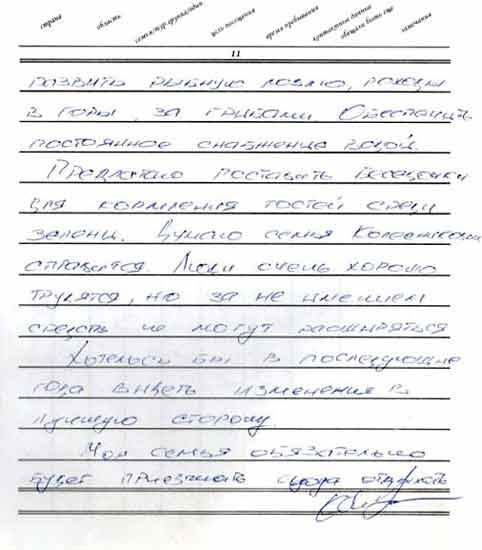 страна область семья/тур.группа/один цель посещения время пребывания контактные данные обещали быть еще замечания
11
развить рыбную ловлю, походы
в горы, за грибами. Обеспечить
постоянное снабжение водой.
Предлагаю поставить беседки
для кормления гостей среди
зелени. Думаю семья
справится. Люди очень хорошо
трудятся, но за не имением
средств не могут расширяться
Хотелось бы в последующие
года видеть изменения в
лучшую сторону.
Моя семья обязательно
будет приезжать сюда отдыхать